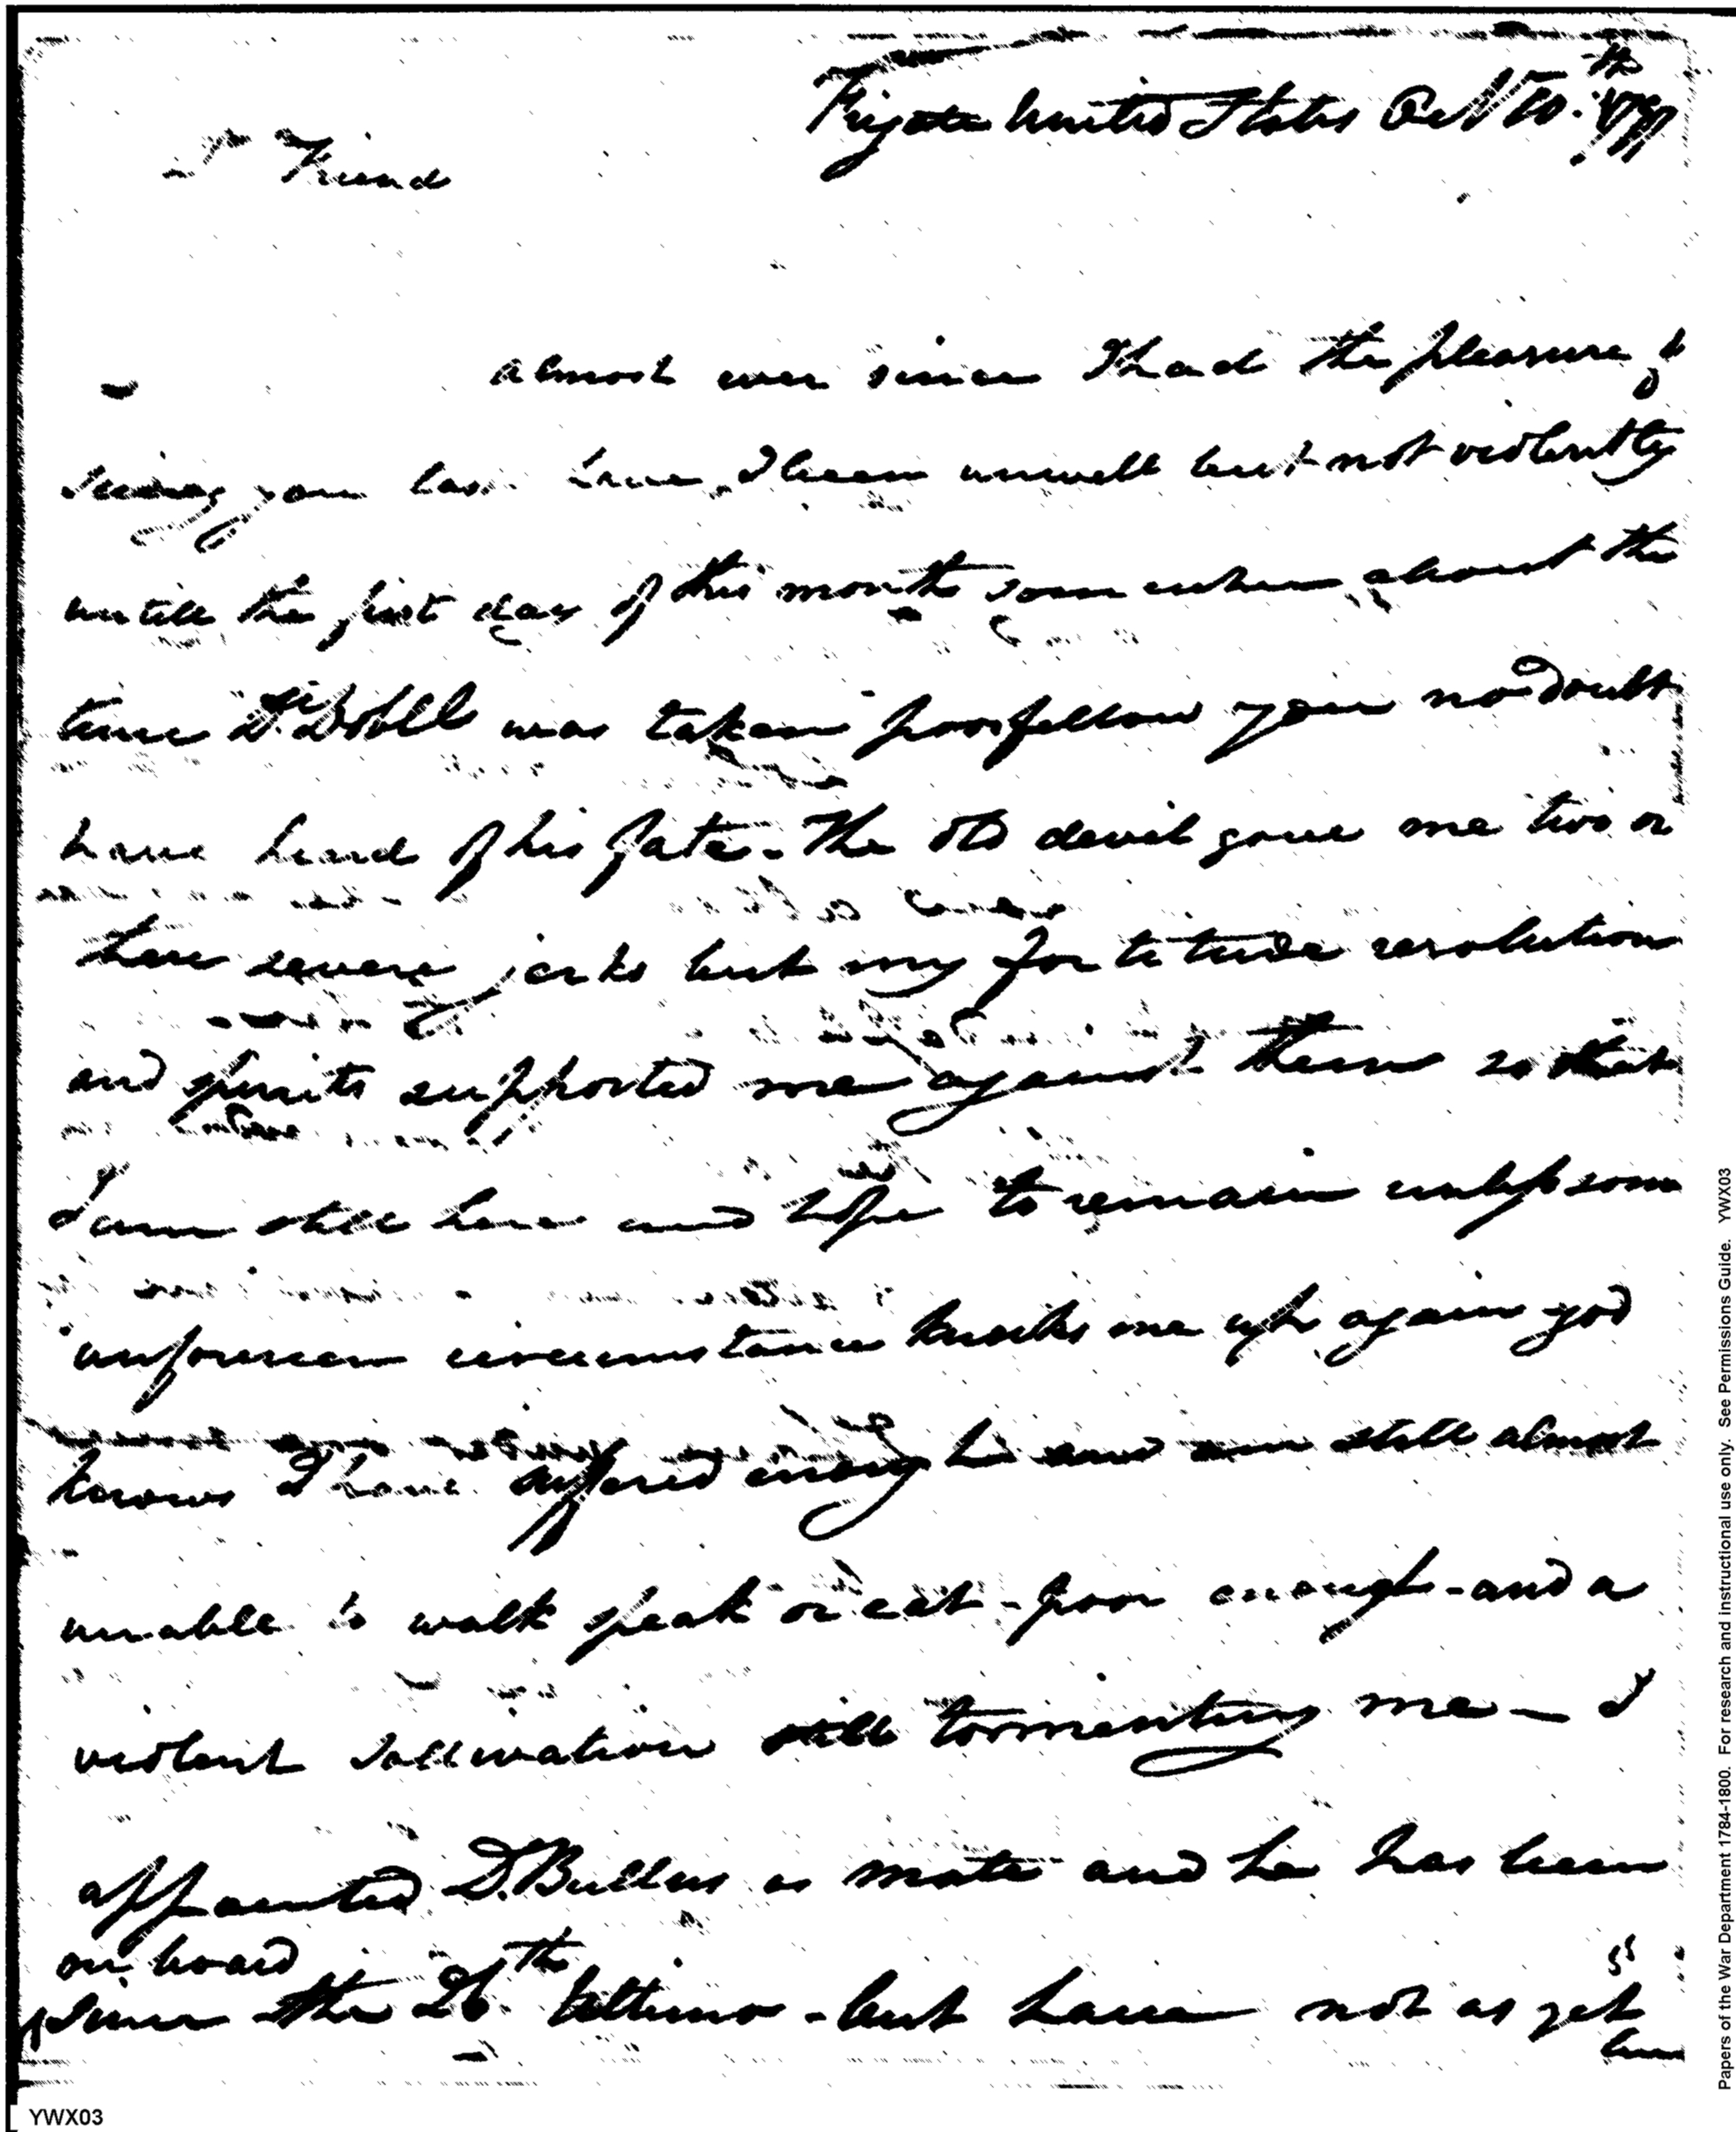 Frigate United States Oct 10th 1797
Dr Friend
almost ever since I had the pleasure of
seeing you last have I been unwell but not violently
untill the first day of this month some where about the
time Dr was taken poor fellow you no doubt
have heard of his fate - The old devil gave me two or
three severe jerks but my fortitude resolution
and spirits supported me against them so that
I am still here and hope to remain unless some
unforeseen circumstance knocks me up again god
knows I have suffered enough and am still almost
unable to walk speak or eat - poor enough - and a
violent sallivation still tormenting me — I
appointed D. Bullus as mate and he has been
on board
since the 26th Ultimo - but have not as yet
Papers of the War Department 1784-1800. For research and instructional use only. See Permissions Guide. YWX03
YWX03